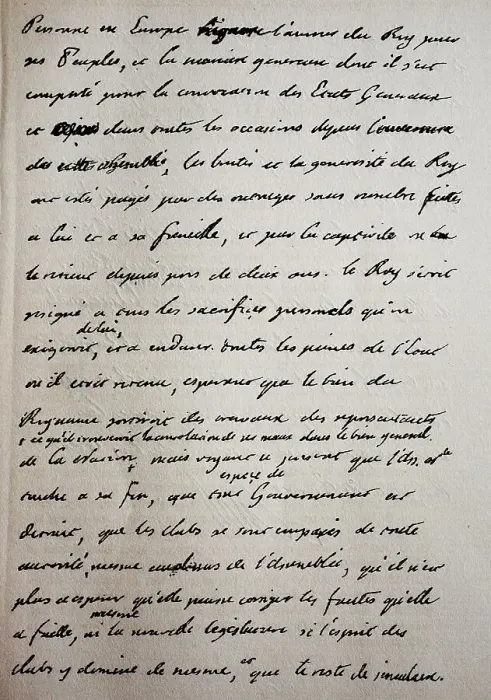 Personne en Europe n'ignore l'amour du Roy pour
ses Peuples, et la maniere genereuse dont il s'est
comporté pour la convocation des Etats Generaux
et dans toutes les occasions depuis l'ouverture
de cette assemblée, les bontés et la generosité du Roy
ont estés payés par des outrages sans nombre faites
a lui et a sa famille, et par la captivité
le retient depuis pres de deux ans. le Roy s'etoit
resigné a tous les sacrifices personels qu'on
de lui,
exigeoit, et a endurer toutes les peines de l'etat
ou il etoit retenu, esperant que le bien du
Royaume sortiroit des travaux des representants
& ce qu'il trouveroit la consolation de ses maux dans le bien general.
de la nation, mais voyant a present que l'Ass. nle
espece de
touche a sa fin, que tout Gouvernement est
detruit, que les clubs se sont emparés de toute
autorité, mesme audessus de l'Assemblée, qu'il n'est
plus a esperer qu'elle puisse corriger les fautes qu'elle
mesme
a faitte, ni la nouvelle legislature si l'esprit des
clubs y domine de mesme, et que le reste de